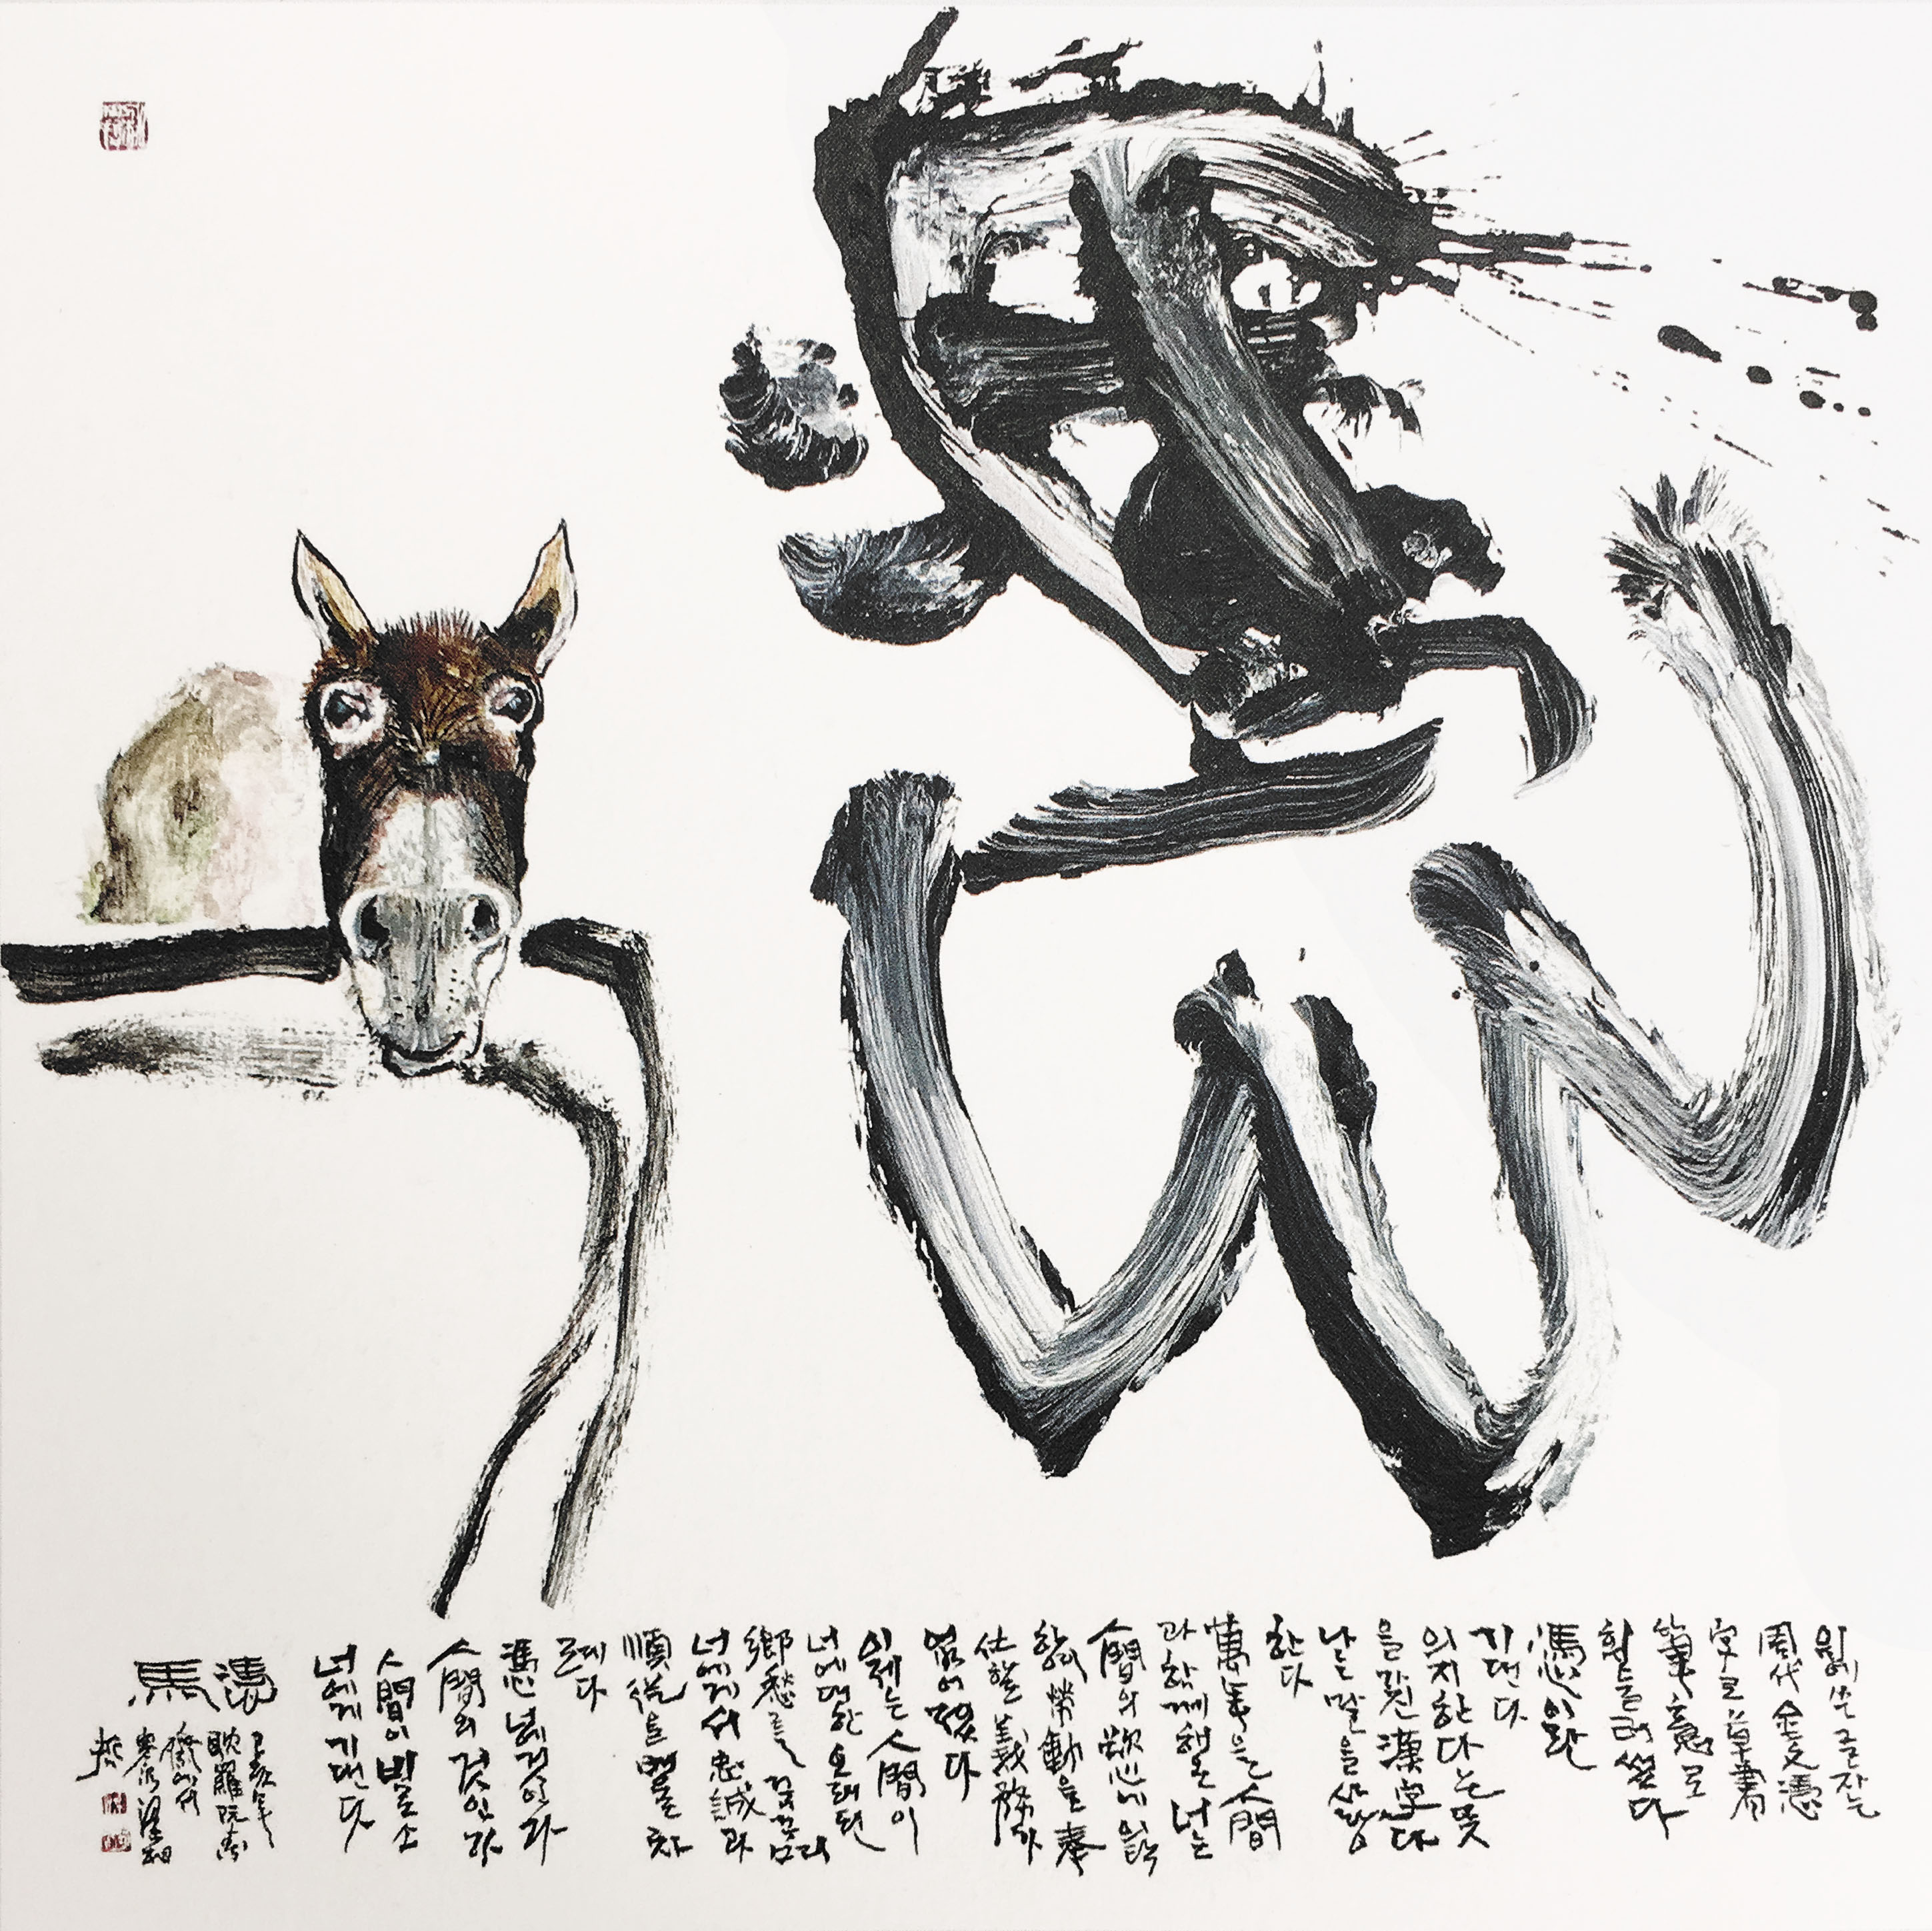 위에 쓴 글자는
周代 金文 憑
字로 草書
筆意로
휘둘러 썼다
憑이란
기댄다
의지한다는 뜻
을 가진 漢字다
나는 말을 사랑
한다
萬年을 人間
과 함께 해온 너는
人間의
勞動을 奉
仕할 義務가
없어졌다
이제는 人間이
너에 대한 오래된
鄕愁를
너에게서 忠誠과
順從을 배울 차
례다
憑 네 것이라
人間의 것인가
人間이 비로소
너에게 기댄다
憑馬
己亥年
耽羅